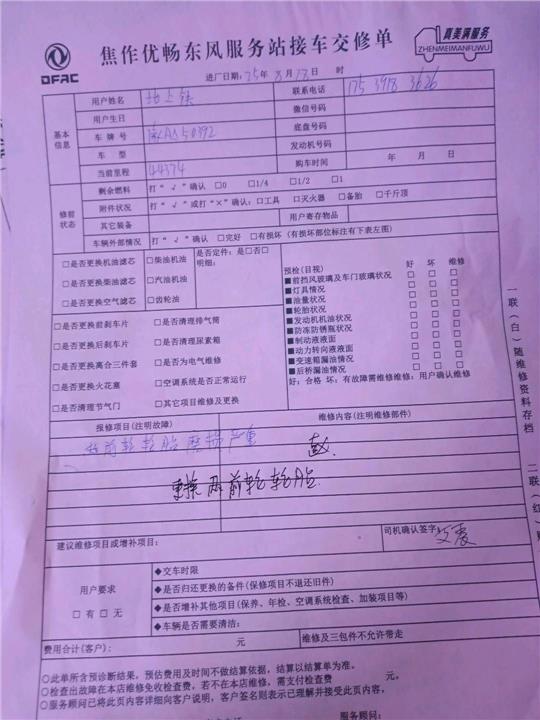 DFAC
焦作优畅东风服务站接车交修单
真美满服务
ZHENMEIMANFUWU
进厂日期: 25年 8月18日 时
基本信息
用户姓名 地上铁 联系电话 175 3918 3626
用户生日 微信号码
车牌号 50392 底盘号码
车型 发动机号码
当前里程 44374 购车时间 年 月 日
修前状态
剩余燃料 打“√”确认 □0 □1/4 □1/2 □1
附件状况 打“√”或打“×”确认:□工具 □灭火器 □备胎 □千斤顶
其它装备 用户寄存物品
车辆外部情况 打“√”确认 □完好 □有损坏(有损坏部位标注有下表左图)
□是否更换机油滤芯 □柴油机油 是否定件:是□否□
明细:
□是否更换柴油滤芯 □汽油机油
□是否更换空气滤芯 □齿轮油
□是否更换前刹车片 □是否清理排气筒
□是否更换后刹车片 □是否清理尿素箱
□是否更换离合三件套 □是否为电气维修
□是否更换火花塞 □空调系统是否正常运行
□是否清理节气门 □其它项目维修及更换
预检(目视) 好 坏 维修
■前挡风玻璃及车门玻璃状况 □ □ □
■灯具情况 □ □ □
■油量状况 □ □ □
■轮胎状况 □ □ □
■发动机机油状况 □ □ □
■防冻防锈瓶状况 □ □ □
■制动液液面 □ □ □
■动力转向液液面 □ □ □
■变速箱漏油情况 □ □ □
■后桥漏油情况 □ □ □
好:合格 坏:有故障需维修维修:用户确认维修
报修项目(注明故障) 维修内容(注明维修部件)
前轮轮胎磨损严重
更换两前轮轮胎
建议维修项目或增补项目: 司机确认签字:
用户要求
□有 □无
◆交车时限
◆是否归还更换的备件(保修项目不退还旧件)
◆是否增补其他项目(保养、年检、空调系统检查、加装项目等)
◆车辆是否需要清洁:
费用合计(客户): 元 维修及三包件不允许带走
○此单所含预诊断结果,预估费用及时间不做结算依据,结算以结算单为准。
○检查出故障在本店维修免收检查费,若不在本店维修,需支付检查费 元。
○服务顾问已将此页内容详细向客户说明,客户签名则表示已理解并接受此页内容,
服务顾问:
一联(白)随维修资料存档
二联(红)